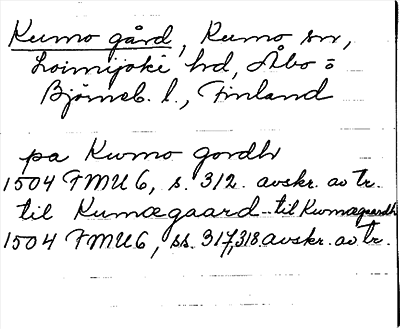 Kumo gård, Kumo sn,
Loimijoki hd, Åbo o
Björneb. l., Finland
pa Kwmo gordh
1504 FMU 6, s. 312. avskr. av tr.
til Kumægaard - til Kwmægaardh
1504 FMU 6, ss. 317, 318 avskr. av tr.